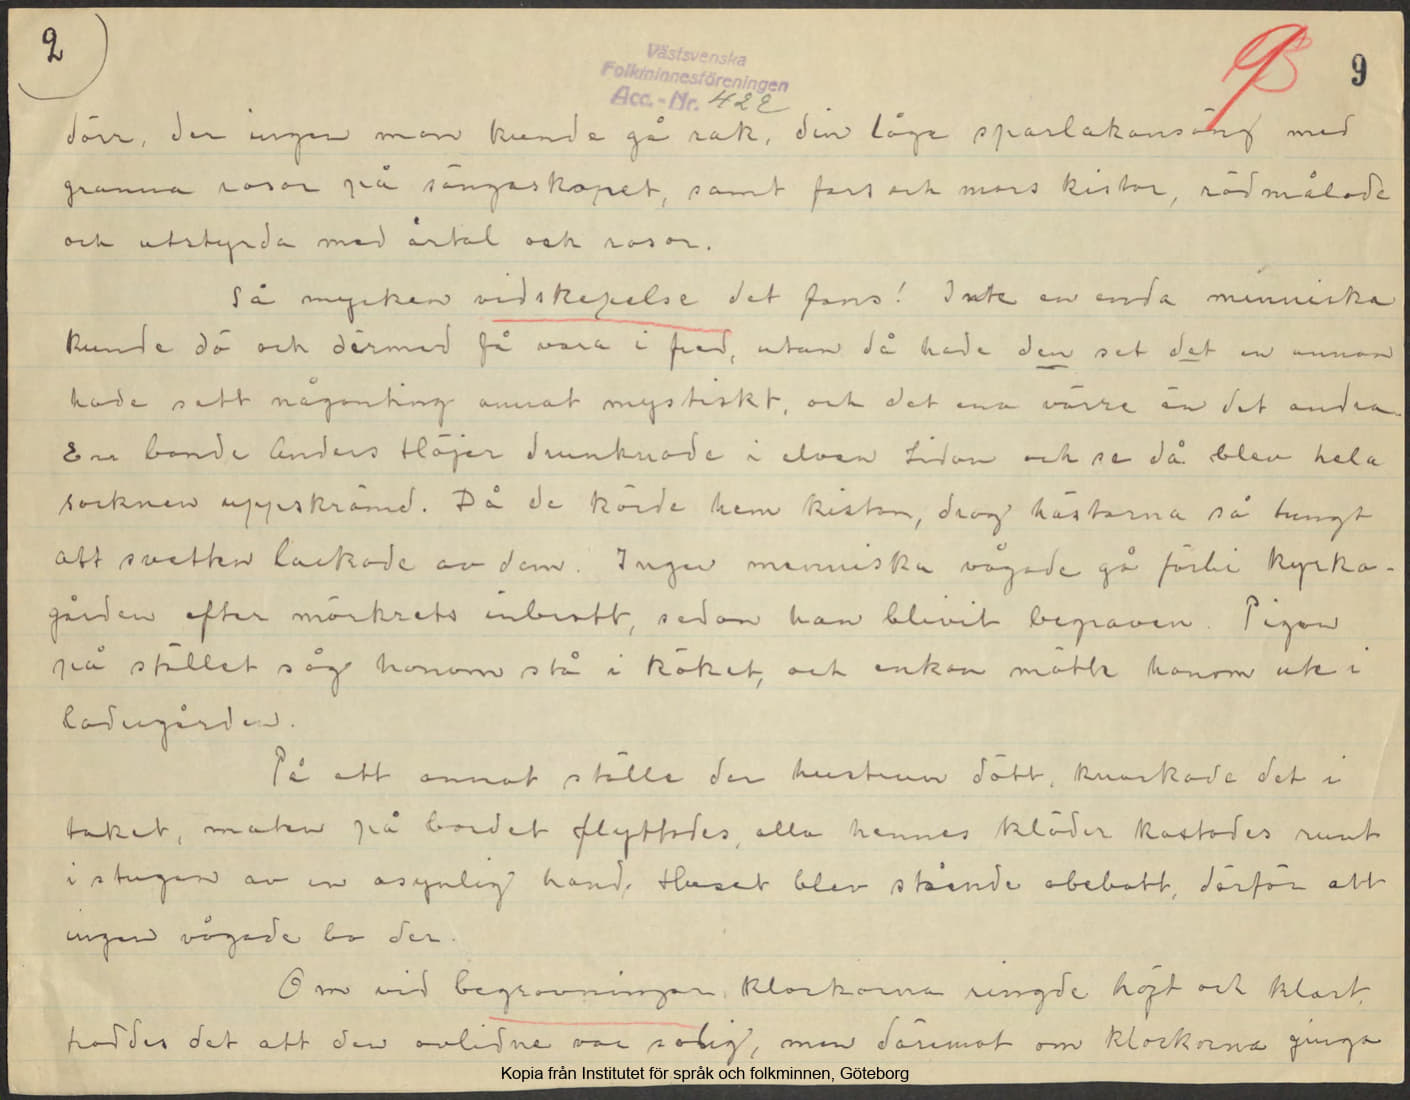 2
Västsvenska
Folkminnesföreningen
Acc.-Nr. 422
9
dörr, der ingen man kunde gå rak, din låge sparlakansäng med
granna rosor på sängaskapet, samt fars och mors kistor, rödmålade
och utstyrda med årtal och rosor.
Så mycken vidskepelse det fans! Inte en enda menniska
kunde dö och dermed få vara i fred, utan då hade den set det en annan
hade sett någonting annat mystiskt, och det ena värre än det andra.
En bonde Anders Höjer drunknade i elven Lidan och se då blev hela
socknen uppskrämd. Då de körde hem kistan, drog hästarna så tungt
att svetten lackade av dem. Ingen menniska vågade gå förbi kyrka-
gården efter mörkrets inbrott, sedan han blivit begraven. Pigan
på stället såg honom stå i köket, och enkan mötte honom ute i
ladugården.
På ett annat ställe der hustrun dött, knackade det i
taket, maten på bordet flyttades, alla hennes kläder kastades runt
i stugan av en osynlig hand. Huset blev stående obebott, därför att
ingen vågade bo der.
Om vid begravningar klockorna ringde högt och klart,
troddes det att den avlidne var salig, men däremot om klockorna ginga
Kopia från Institutet för språk och folkminnen, Göteborg